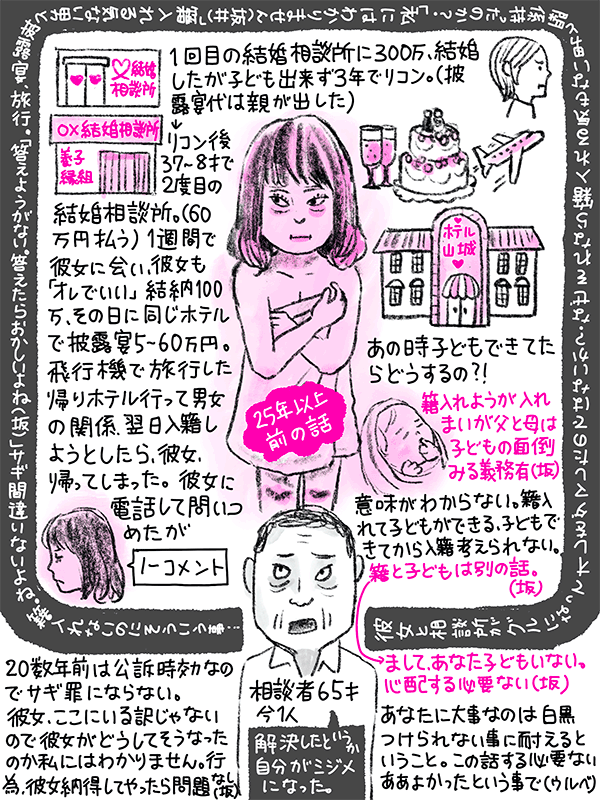 結婚
相談所
1回目の結婚相談所に300万、結婚
したが子ども出来ず3年でリコン。(披
露宴代は親が出した)
○×結婚相談所
養子
縁組
リコン後
37~8才で
2度目の
結婚相談所。(60
万円払う)1週間で
彼女に会い、彼女も
「オレでいい」結納100
万、その日に同じホテル
で披露宴5~60万円。
飛行機で旅行した
帰りホテル行って男女
の関係、翌日入籍し
ようとしたら、彼女、
帰ってしまった。彼女に
電話して問いつ
めたが
ノーコメント
25年以上
前の話
ホテル
山城
あの時子どもできてた
らどうするの?!
籍入れようが入れ
まいが父と母は
子どもの面倒
みる義務有(坂)
意味がわからない。籍入
れて子どもができる、子どもで
きてから入籍考えられない。
籍と子どもは別の話。
(坂)
まして、あなた子どもいない。
心配する必要ない(坂)
彼女と相談所がグルになってオレをダマしたのではないか?なぜそれなら籍入れる気もない男と
関係持ったのか?「私にはわかりません(坂井)」籍入れる気ない男と
披露宴、旅行。「答えようがない。答えたらおかしいよね(坂)」サギ間違いないよね。
籍入れないのにそういう事…
20数年前は公訴時効なの
でサギ罪にならない。
彼女、ここにいる訳じゃない
ので彼女がどうしてそうなった
のか私にはわかりません。行
為、彼女納得してやったら問題なし(坂)
相談者65才
今1人
解決したというか
自分がミジメ
になった。
あなたに大事なのは白黒
つけられない事に耐えると
いうこと。この話する必要ない
ああよかったという事で(ウルベ)